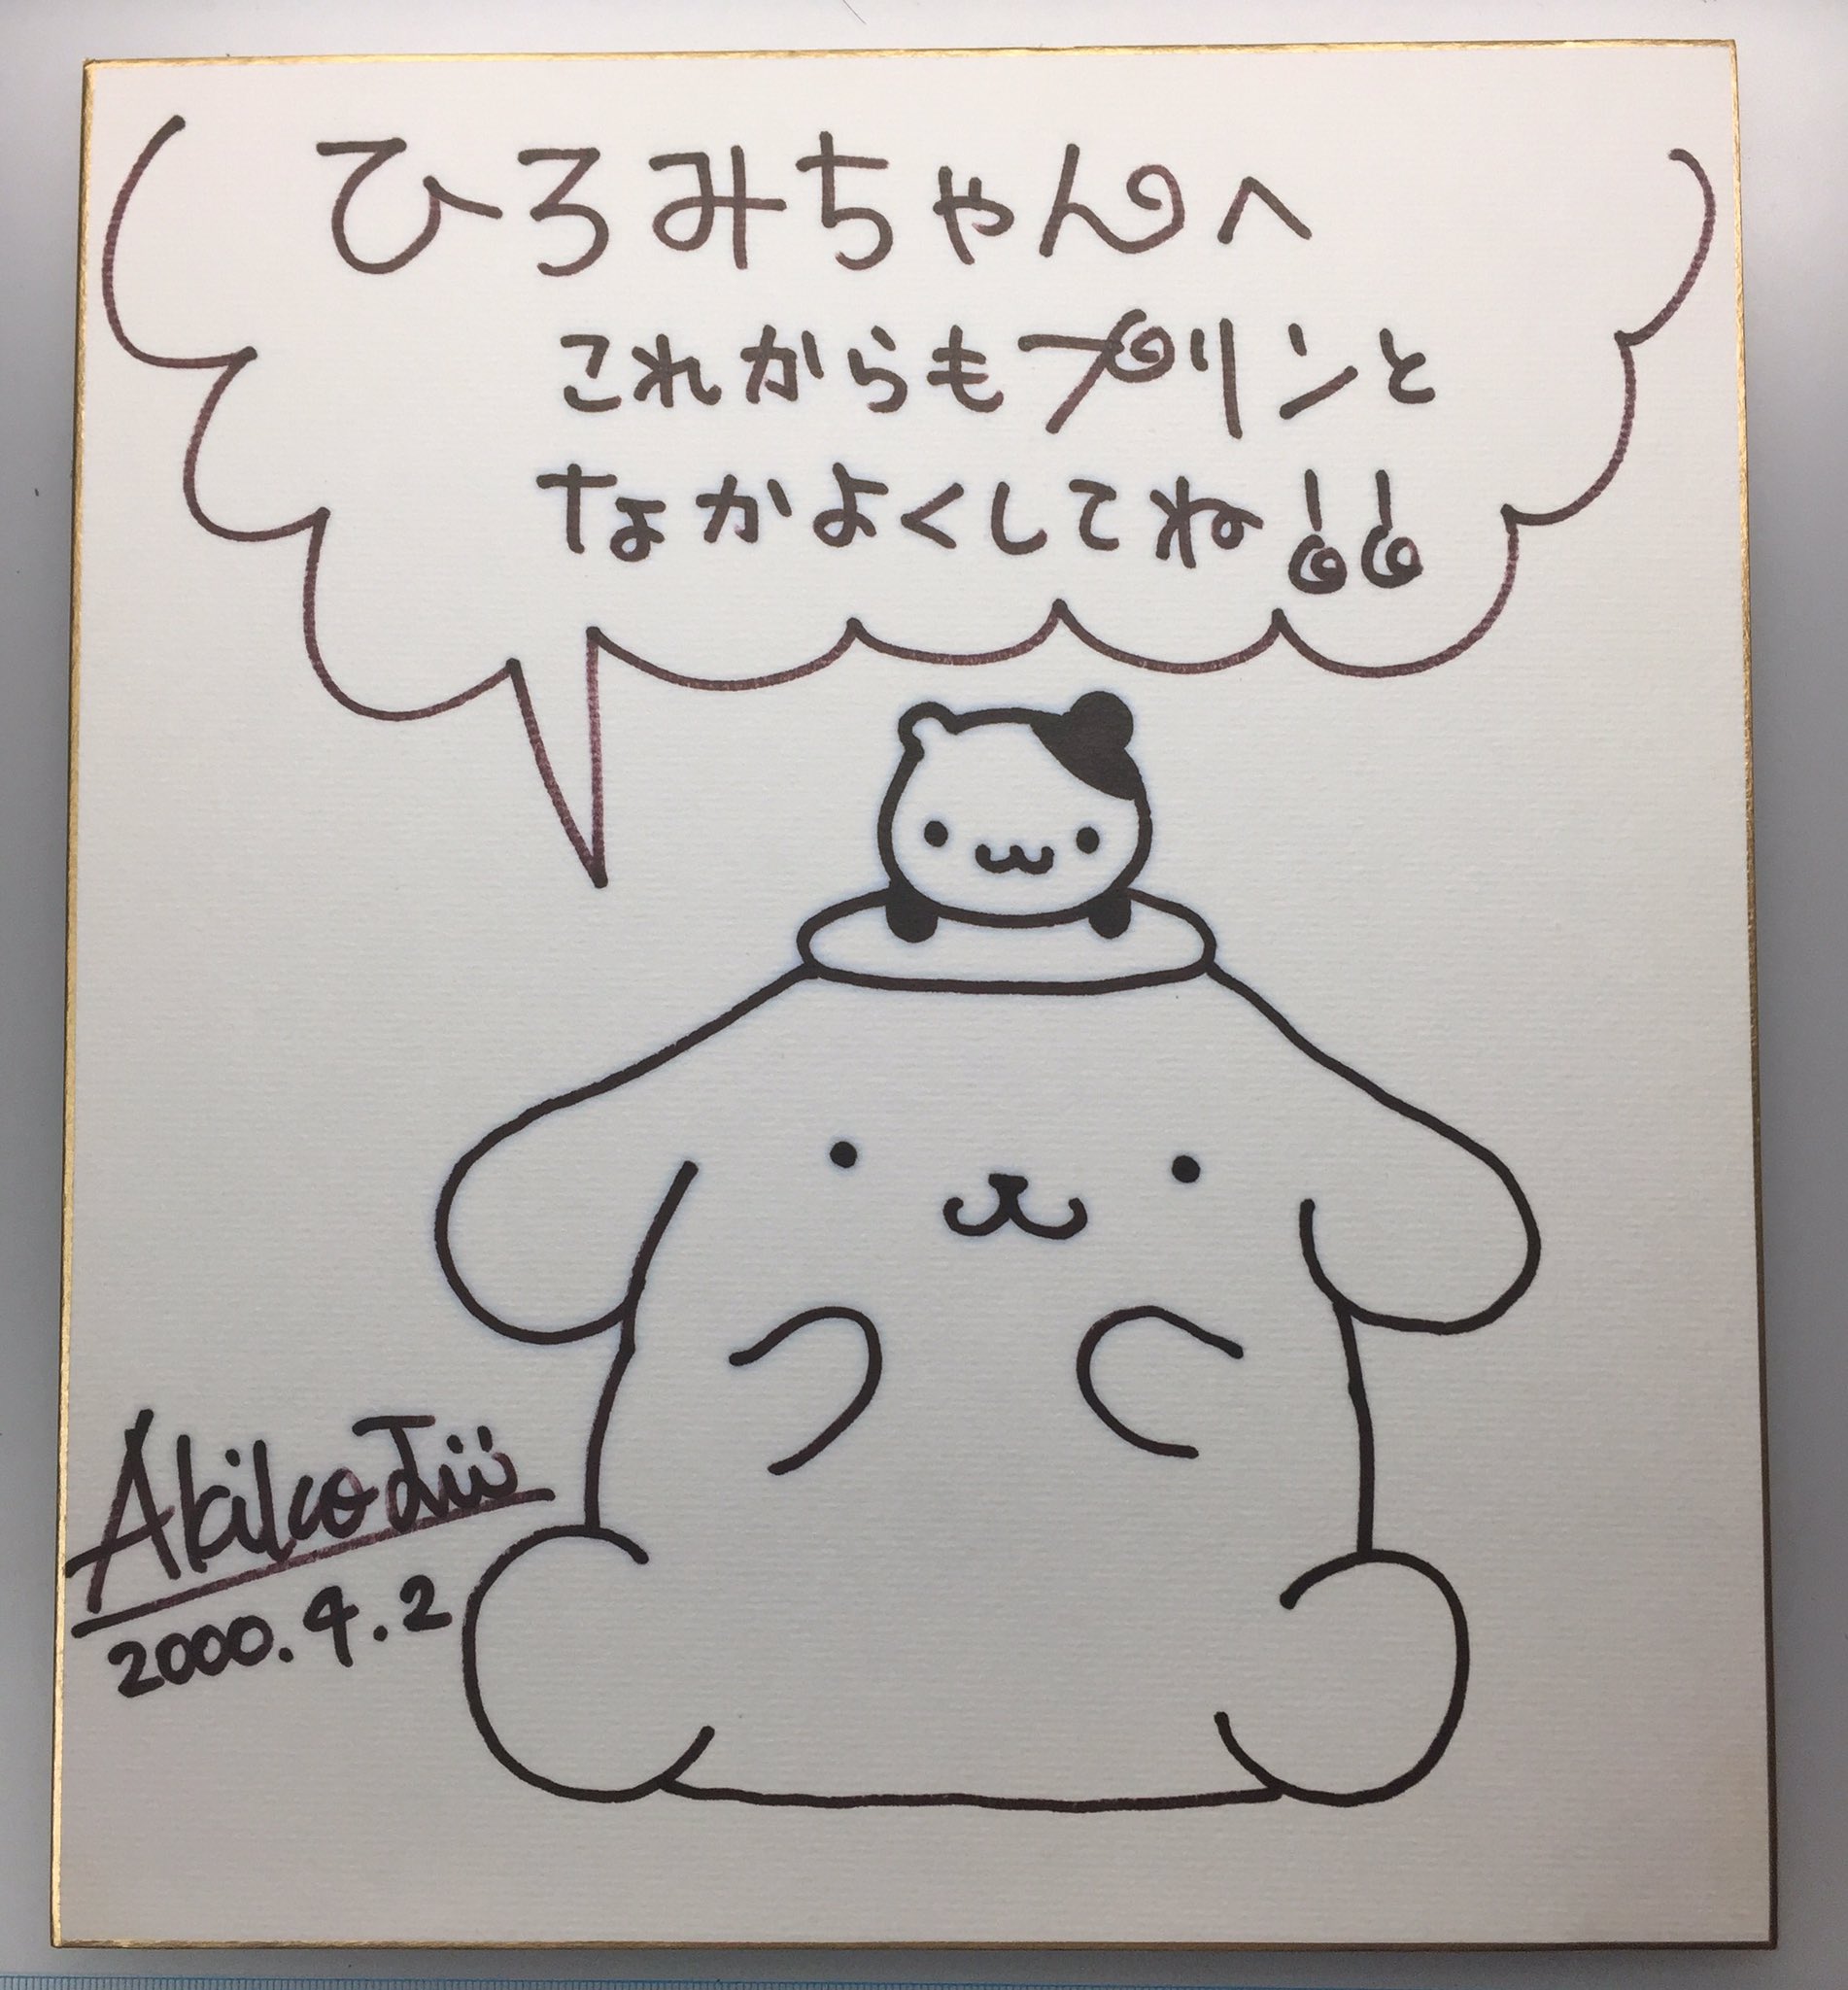 ひろみちゃんへ
これからもプリンと
なかよくしてね!!
Akiko
2000.4.2